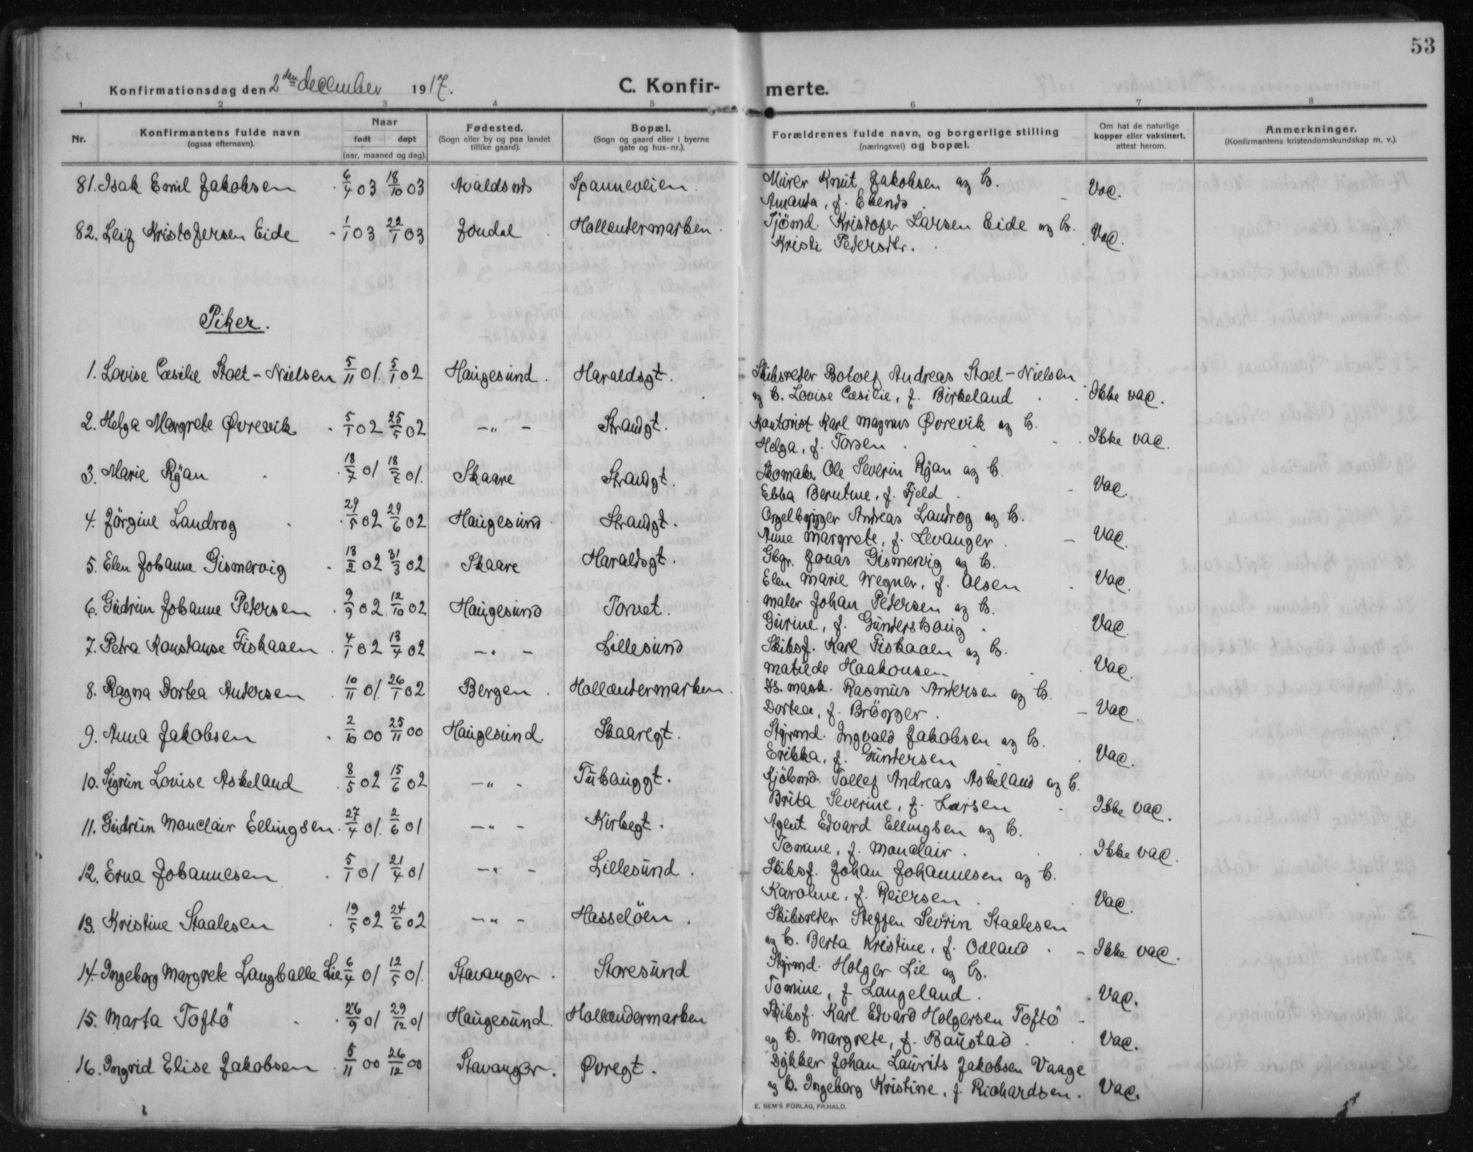 53
Konfirmationsdag den 2den december 1917.
C. Konfir- merte.
1 2 3 4 5 6 7 8
Nr. Konfirmantens fulde navn (ogsaa efternavn). Naar født døpt (aar, maaned og dag). Fødested. (Sogn eller by og paa landet tillike gaard). Bopæl. (Sogn og gaard eller i byerne gate og hus-nr.). Forældrenes fulde navn, og borgerlige stilling (næringsvei) og bopæl. Om hat de naturlige kopper eller vaksinert, attest herom. Anmerkninger. (Konfirmantens kristendomskundskap m. v.).
81. Isak Emil Jakobsen 6/4 03 18/10 03 Avaldsnes Spanneveien. Murer Knut Jakobsen og h. Vac.
Amanda, f. Ekends.
82. Leif Kristofersen Eide 1/1 03 22/1 03 Jondal Hollendermarken. Tjömd Kristofer Larsen Eide og h. Vac.
Kristi Pedersdtr.
Piker.
1. Lovise Cæsilie Stoet-Nielsen 5/11 01. 5/1 02 Haugesund. Haraldsgt. Skibsreder Botolf Andreas Stoet-Nielsen
og h. Lovise Cæsilie, f. Birkeland. Ikke vac.
2. Helga Margrete Øvrevik 5/1 02 25/5 02 -"- Strandgt. Kontorist Karl Magnus Øvrevik og h.
Helga, f. Torsen. Ikke vac.
3. Marie Ryan 18/7 01 18/7 01. Skaare Strandgt. Skomaker Ole Severin Ryan og h.
Ebba Berntine, f. Fjeld. Vac.
4. Jörgine Landrog 29/5 02 29/6 02 Haugesund Strandgt. Orgelbygger Andreas Landrog og h.
Anne Margrete, f. Levanger. Vac.
5. Elen Johanne Gismervig 18/2 02 31/3 02 Skaare Haraldsgt. Gbgr. Jonas Gismervig og h.
Elen Marie Wegner, f. Olsen. Vac.
6. Gudrun Johanne Petersen 9/9 02 12/10 02 Haugesund Torvet. Maler Johan Petersen og h.
Gurine, f. Gundershaug. Vac.
7. Petra Konstanse Fiskaaen 4/1 02 13/4 02 -"- Lillesund Skibsf. Karl Fiskaaen og h.
Matilde Haakonsen Vac.
8. Ragna Dortea Andersen 10/11 01 26/1 02 Bergen. Hollendermarken. Ds. mask. Rasmus Andersen og h.
Dortea, f. Brögger. Vac.
9. Anna Jakobsen 2/10 00 25/11 00 Haugesund Skaaregt. Styrmd. Ingvald Jakobsen og h.
Erikka, f. Gundersen. Vac.
10. Sigrun Lovise Askeland 8/5 02 15/6 02 -"- Tuhauggt. Sjömd. Tollef Andreas Askeland og h.
Brita Severine, f. Larsen. Ikke vac.
11. Gudrun Monclair Ellingsen. 27/4 01. 2/6 01 -"- Kirkegt. Agent Edvard Ellingsen og h.
Tomine, f. Monclair. Ikke vac.
12. Erna Johannesen 5/1 01 21/4 01 -"- Lillesund. Skibsf. Johan Johannesen og h.
Karoline, f. Reiersen. Vac.
13. Kristine Staalesen 19/5 02 24/6 02 -"- Hasselöen. Skibsreder Steffen Sevrin Staalesen
og h. Berta Kristine, f. Odland. Ikke vac.
14. Ingeborg Margrete Langballe Lie 6/4 01 12/5 01. Stavanger. Storesund Styrmd. Holger Lie og h.
Tomine, f. Langeland. Vac.
15. Marta Toftö 26/9 01 29/12 01 Haugesund. Hollendermarken Skibsf. Karl Edvard Holgersen Toftö
og h. Margrete, f. Baustad. Vac.
16. Ingrid Elise Jakobsen 5/11 00 26/12 00 Stavanger. Øvregt. Dykker Johan Laurits Jakobsen Vaage
og h. Ingeborg Kristine, f. Richardsen. Vac.
E. SEM'S FORLAG, FR.HALD.